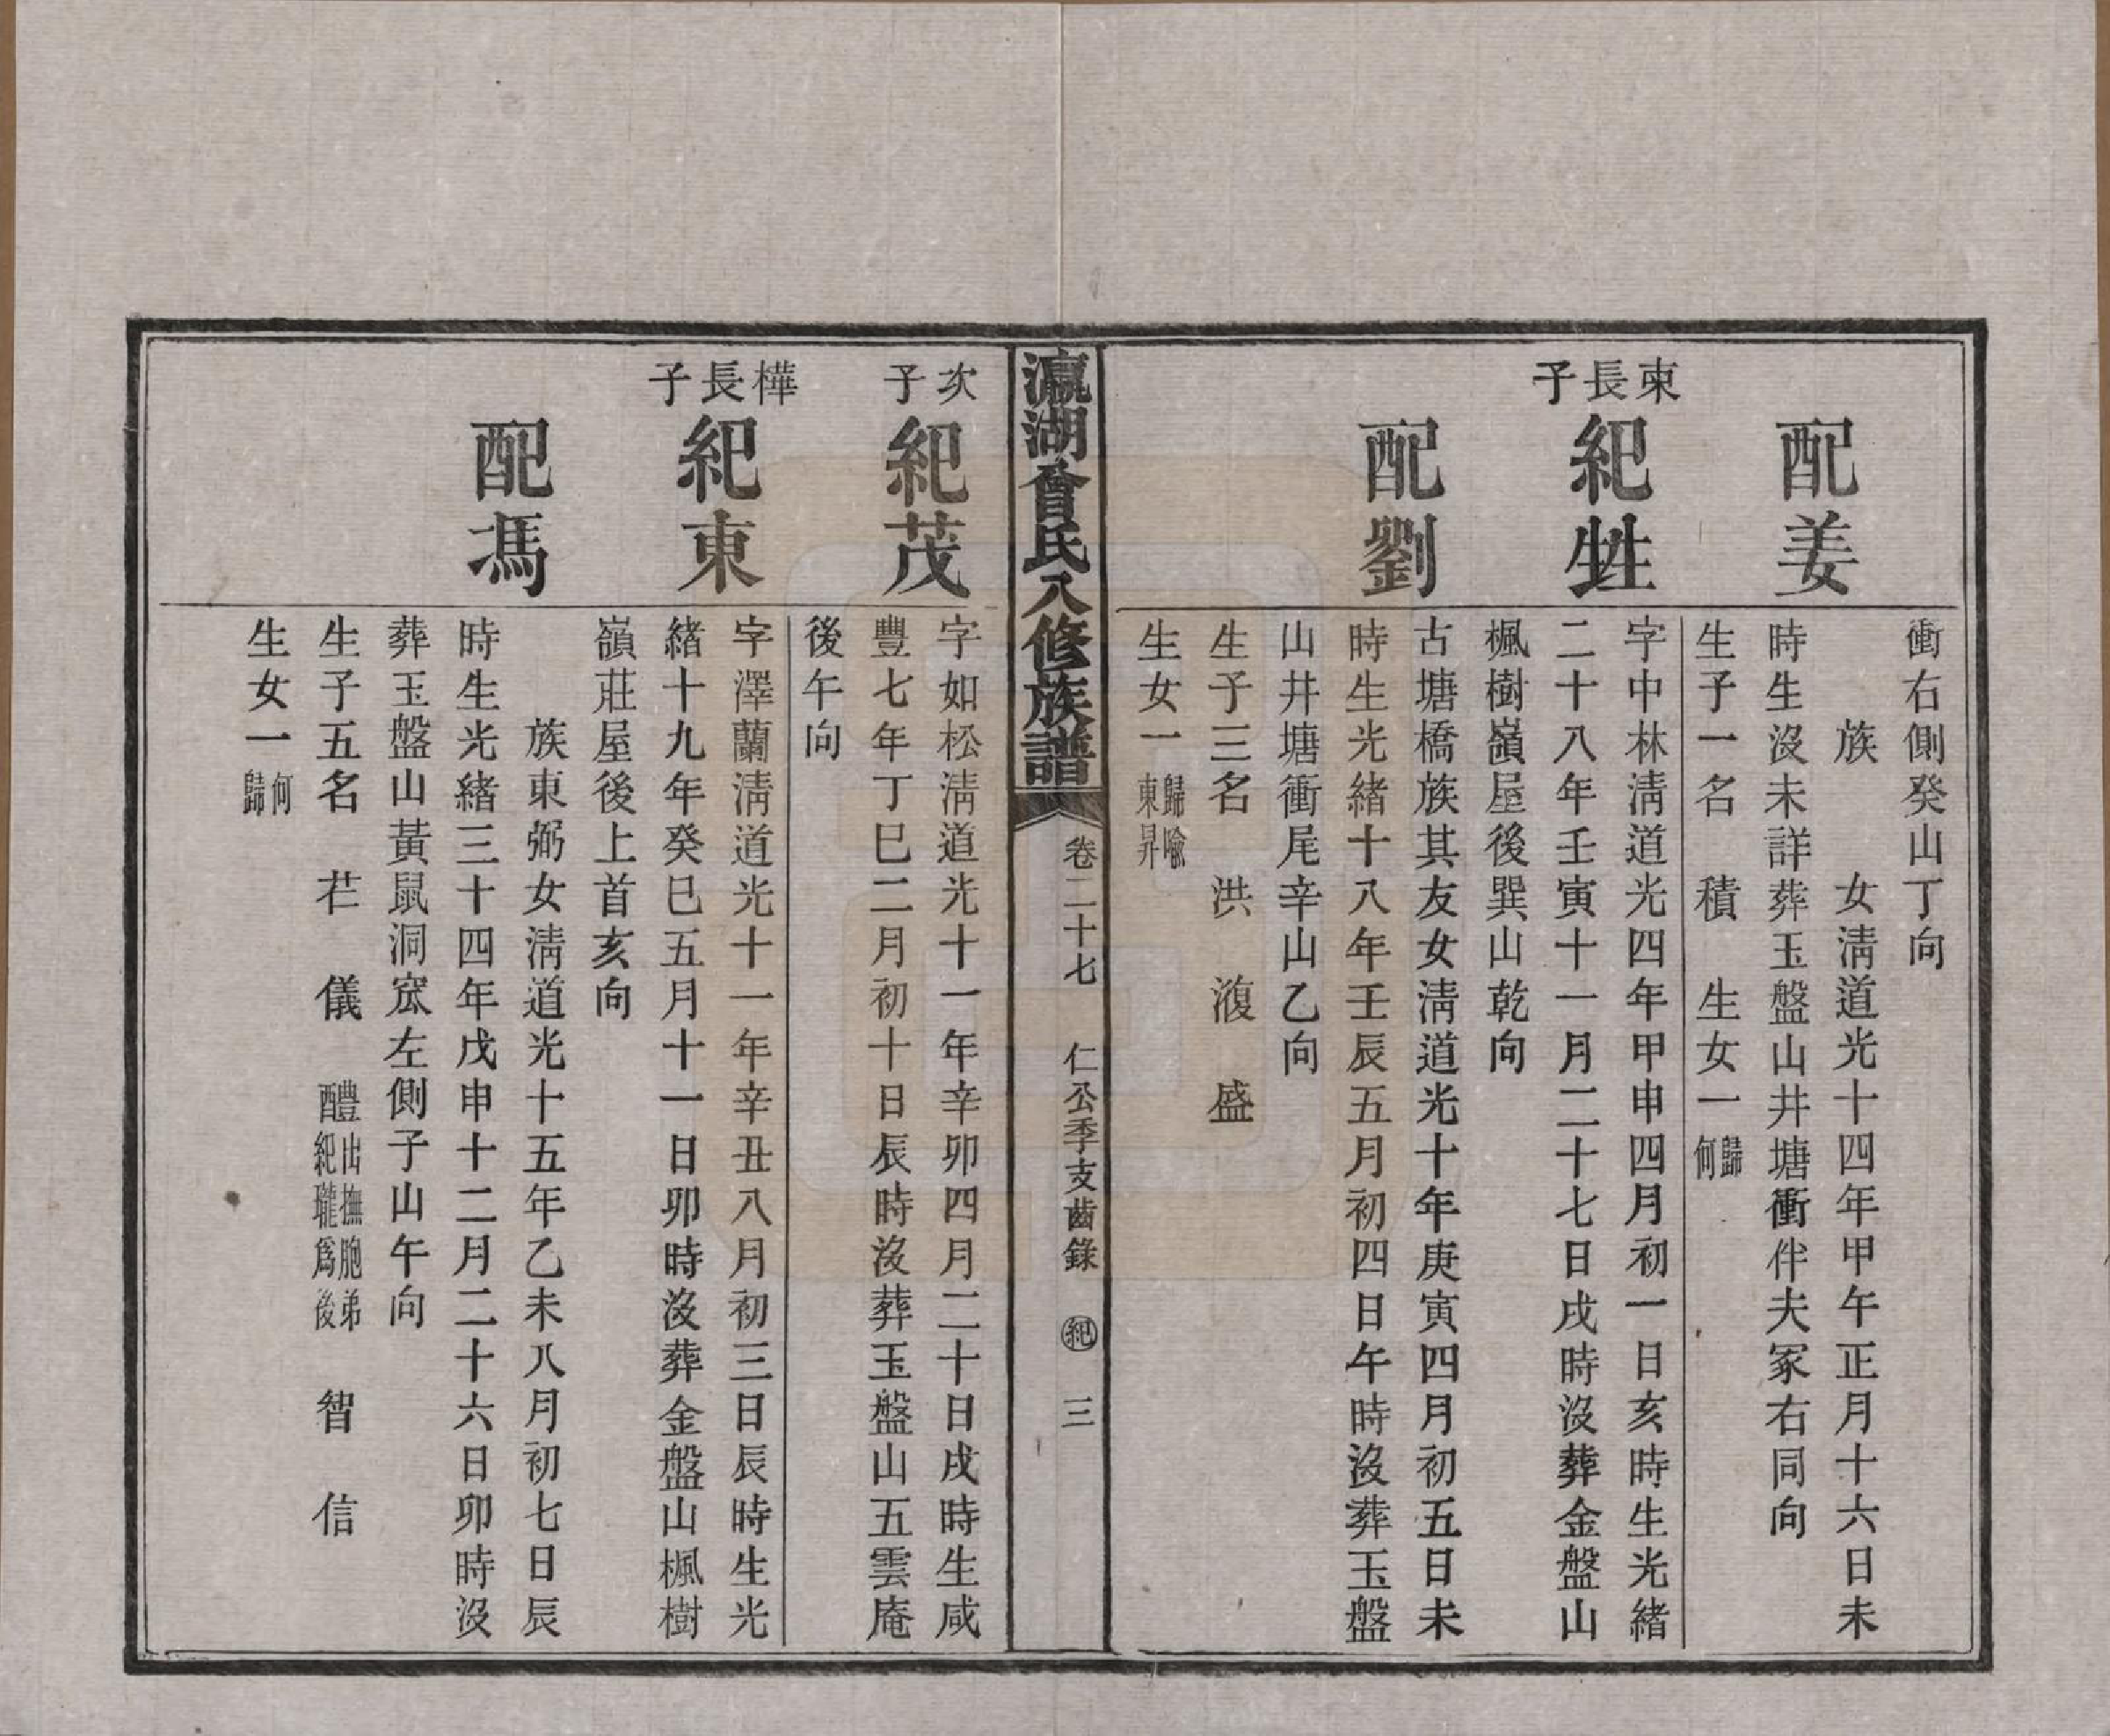 衝右側癸山丁向
配姜
族　女淸道光十四年甲午正月十六日未
時生沒未詳葬玉盤山井塘衝伴夫冢右同向
生子一名　積　生女一歸何
柬長子
紀甡
字中林淸道光四年甲申四月初一日亥時生光緖
二十八年壬寅十一月二十七日戌時沒葬金盤山
楓樹嶺屋後巽山乾向
配劉
古塘橋族其友女淸道光十年庚寅四月初五日未
時生光緖十八年壬辰五月初四日午時沒葬玉盤
山井塘衝尾辛山乙向
生子三名　洪　澓　盛
生女一歸喩東昇
瀛湖曾氏八修族譜
卷二十七　仁公季支齒錄　紀　三
次子
紀茂
字如松淸道光十一年辛卯四月二十日戌時生咸
豐七年丁巳二月初十日辰時沒葬玉盤山五雲庵
後午向
樺長子
紀東
字澤蘭淸道光十一年辛丑八月初三日辰時生光
緖十九年癸巳五月十一日卯時沒葬金盤山楓樹
嶺莊屋後上首亥向
配馮
族東弼女淸道光十五年乙未八月初七日辰
時生光緖三十四年戊申十二月二十六日卯時沒
葬玉盤山黃鼠洞窊左側子山午向
生子五名　芢　儀　醴出撫胞弟紀瓏爲後　智　信
生女一何歸